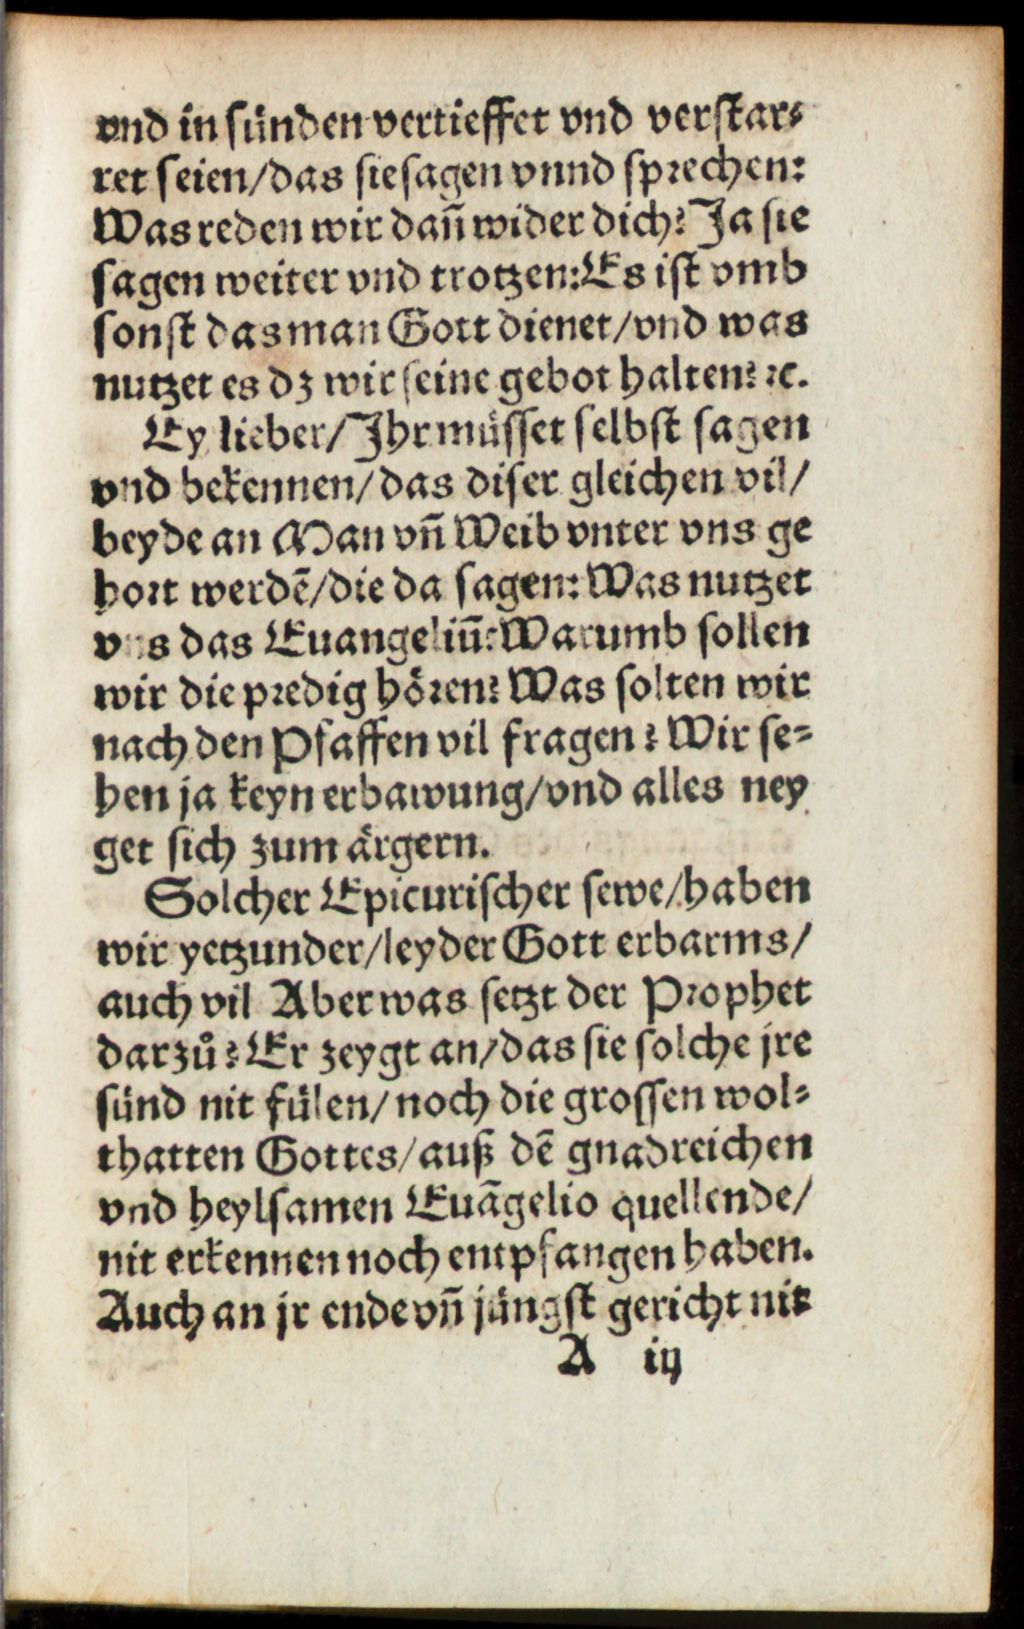 vnd in sünden vertieffet vnd verstar⸗
ret seien/das sie sagen vnnd sprechen:
Was reden wir dañ wider dich? Ja sie
sagen weiter vnd trotzen: Es ist vmb
sonst das man Gott dienet/vnd was
nutzet es dz wir seine gebot halten? ꝛc.
Ey lieber/Ihr müsset selbst sagen
vnd bekennen/das diser gleichen vil/
beyde an Man vñ Weib vnter vns ge
hort werdẽ/die da sagen: Was nutzet
vns das Euangeliũ? Warumb sollen
wir die predig hören? Was solten wir
nach den Pfaffen vil fragen? Wir se⸗
hen ja keyn erbawung/vnd alles ney
get sich zum ärgern.
Solcher Epicurischer sewe/haben
wir yetzunder/leyder Gott erbarms/
auch vil Aber was setzt der Prophet
darzů? Er zeygt an/das sie solche jre
sünd nit fülen/noch die grossen wol⸗
thatten Gottes/auß dẽ gnadreichen
vnd heylsamen Euãgelio quellende/
nit erkennen noch entpfangen haben.
Auch an jr ende vñ jüngst gericht nit
A iij